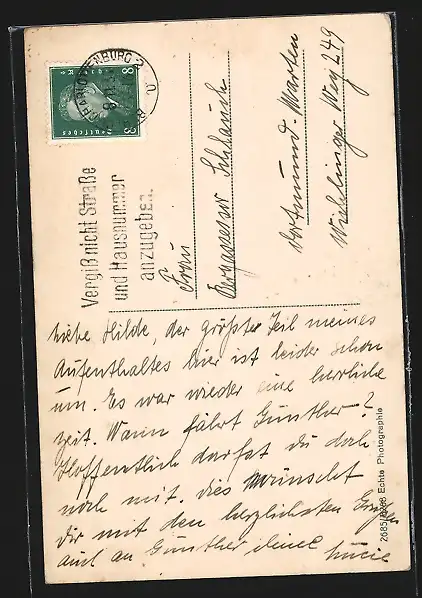 CHARLOTTENBURG 2
Deutsches Reich
8 8
Vergiß nicht Straße
und Hausnummer
anzugeben.
Frau
Bergassessor Schlauch
Dortmund-Marten
Wischlinger Weg 249
Liebe Hilde, der größte Teil meines
Aufenthaltes hier ist leider schon
um. Es war wieder eine herrliche
Zeit. Wann fährt Günther?
Hoffentlich darfst du doch
noch mit. Dies wünscht
dir mit den herzlichsten Grüßen
auch an Günther deine Lucie
Echte Photographie